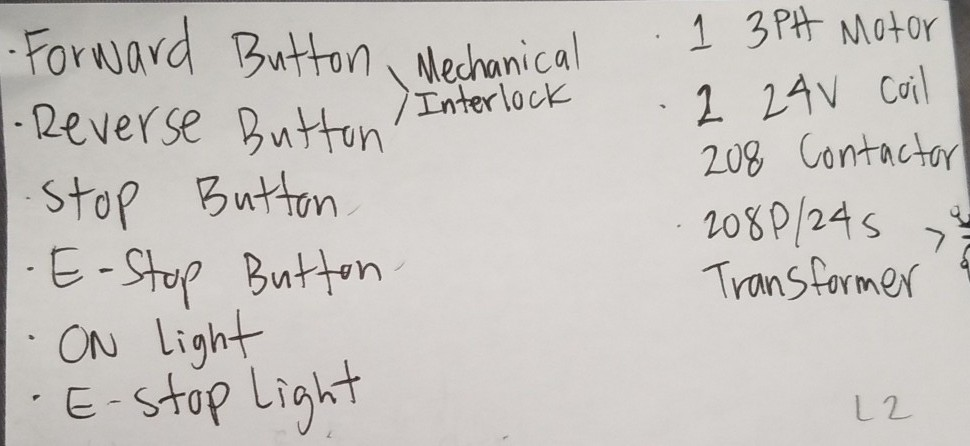 · Forward Button
· Reverse Button
Mechanical
Interlock
· Stop Button
· E-Stop Button
· ON Light
· E-stop Light
· 1 3PH Motor
· 2 24V Coil
208 Contactor
· 208P/24s
Transformer
L2